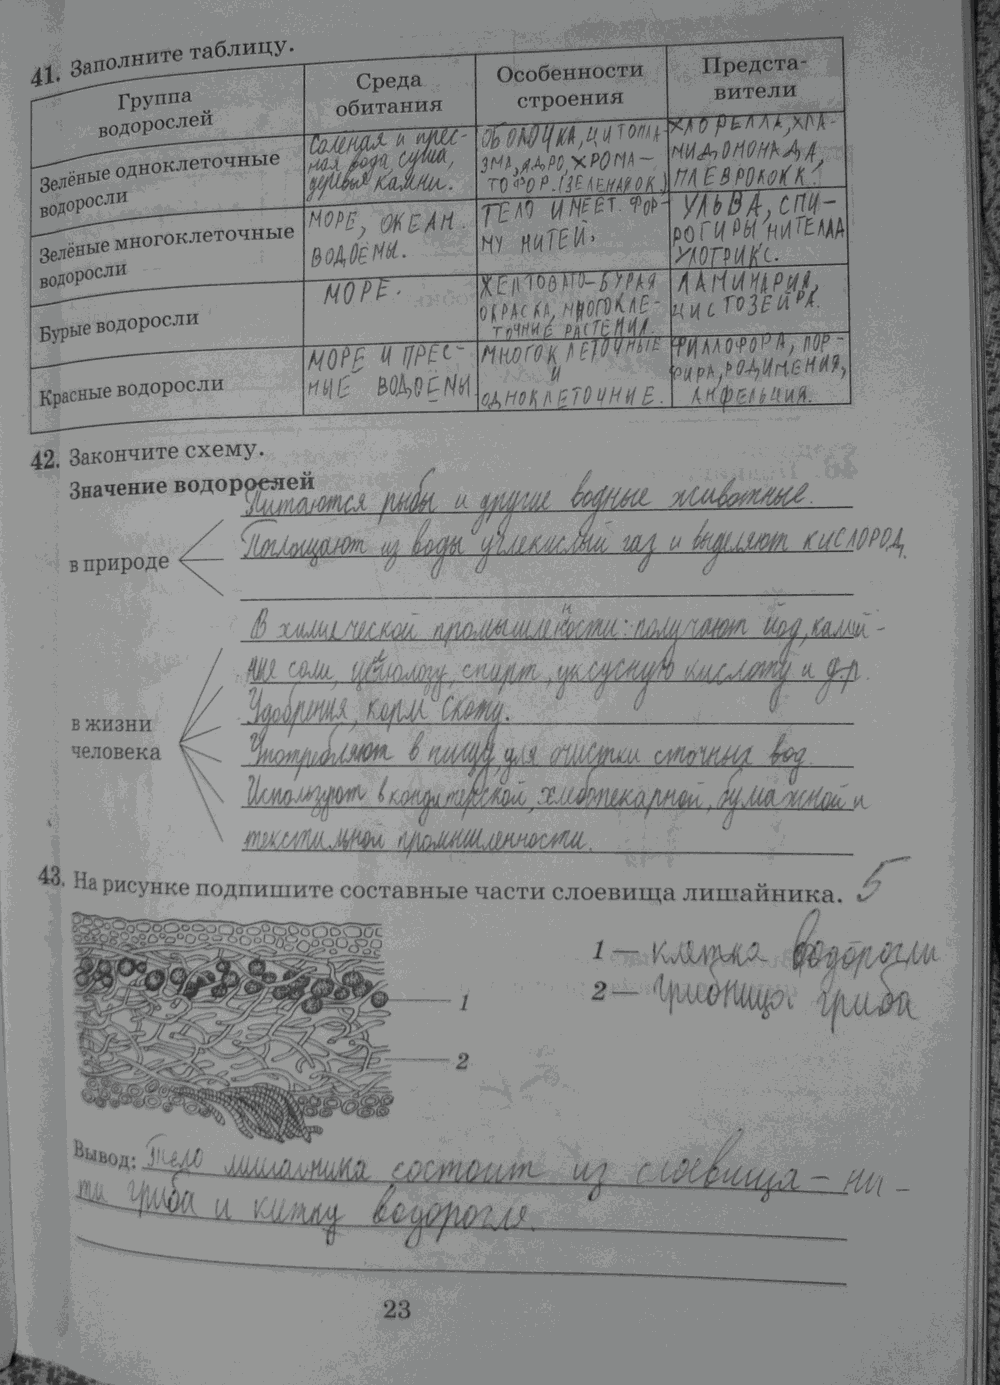 41. Заполните таблицу.
Группа водорослей
Среда обитания
Особенности строения
Представители
Зелёные одноклеточные водоросли
Соленая и прес-
ная вода, суша,
деревья камни.
ОБОЛОЧКА, ЦИТОПЛА-
ЗМА, ЯДРО, ХРОМА-
ТОФОР. (ЗЕЛЕНАЯ ОК.)
ХЛОРЕЛЛА, ХЛА-
МИДОМОНАДА,
ПЛЕВРОКОКК.
Зелёные многоклеточные водоросли
МОРЕ, ОКЕАН.
ВОДОЁМЫ.
ТЕЛО ИМЕЕТ ФОР-
МУ НИТЕЙ.
УЛЬВА, СПИ-
РОГИРЫ НИТЕЛЛА
УЛОТРИКС.
Бурые водоросли
МОРЕ.
ЖЕЛТОВАТО-БУРАЯ
ОКРАСКА, МНОГОКЛЕ-
ТОЧНЫЕ РАСТЕНИЯ.
ЛАМИНАРИЯ,
ЦИСТОЗЕЙРА.
Красные водоросли
МОРЕ И ПРЕС-
НЫЕ ВОДОЁМЫ
МНОГОКЛЕТОЧНЫЕ
И
ОДНОКЛЕТОЧНЫЕ.
ФИЛЛОФОРА, ПОР-
ФИРА, РОДИМЕНИЯ,
АНФЕЛЬЦИЯ.
42. Закончите схему.
Значение водорослей
в природе
Питаются рыбы и другие водные животные.
Поглощают из воды углекислый газ и выделяют КИСЛОРОД.
в жизни человека
В химической промышленности: получают йод, калий-
ные соли, целюлозу, спирт, уксусную кислоту и др.
Удобрения, корм скоту.
Употребляют в пищу, для очистки сточных вод.
Используют в кондитерской, хлебопекарной, бумажной и
текстильной промышленности.
43. На рисунке подпишите составные части слоевища лишайника. 5
1 — клетка водоросли
2 — грибница гриба
1
2
Вывод: Тело лишайника состоит из слоевища – ни-
ти гриба и клетку водоросля.
23